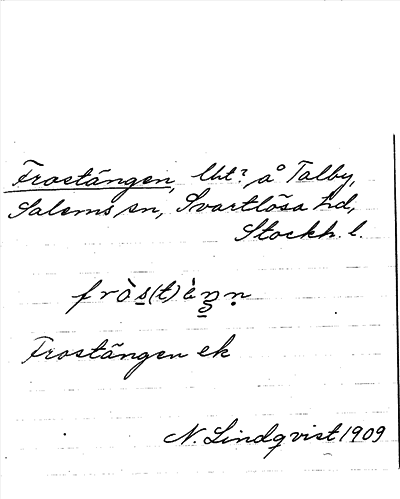 Frostängen, Utt? å Talby,
Salems sn, Svartlösa hd,
Stockh. l.
fròs(t)àŋṇ
Frostängen ek
N. Lindqvist 1909